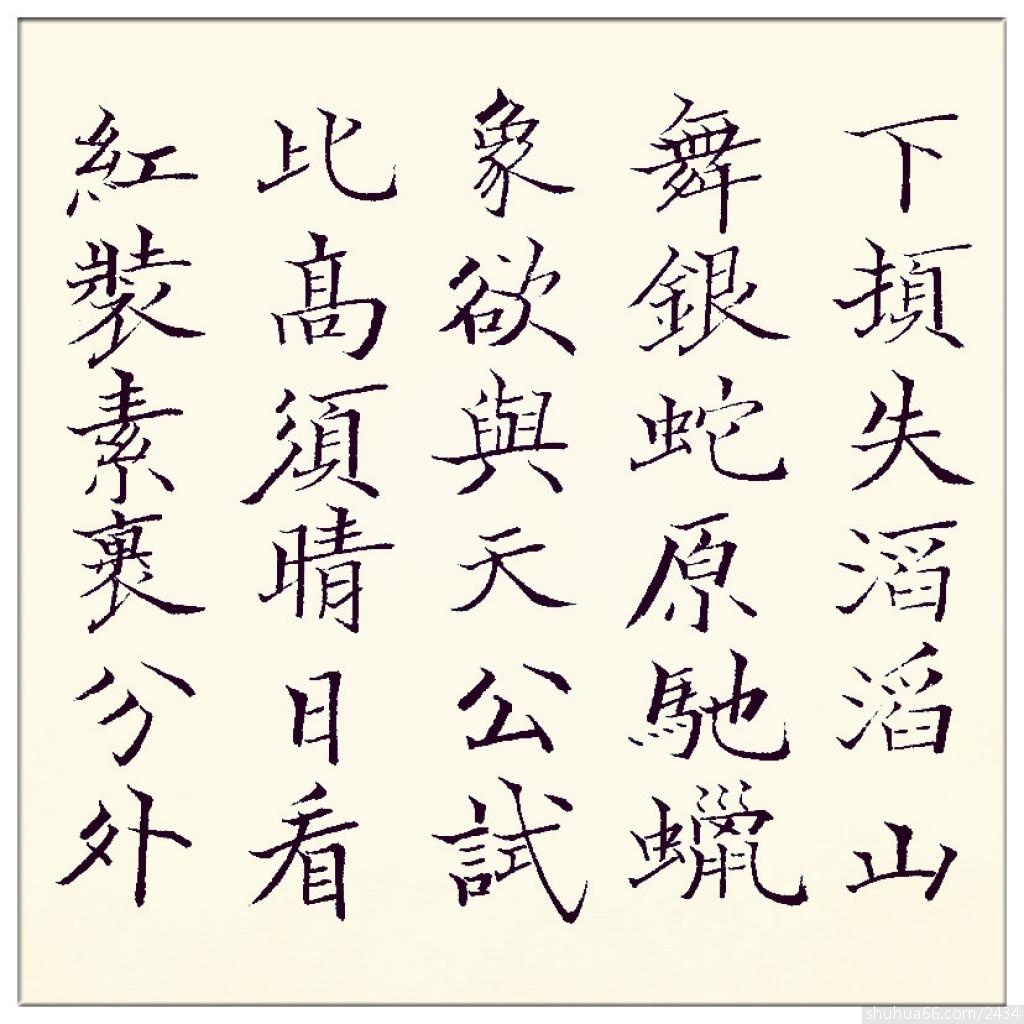 下頓失滔滔山
舞銀蛇原馳蠟
象欲與天公試
比高須晴日看
紅裝素裹分外
shuhua66.com/2434